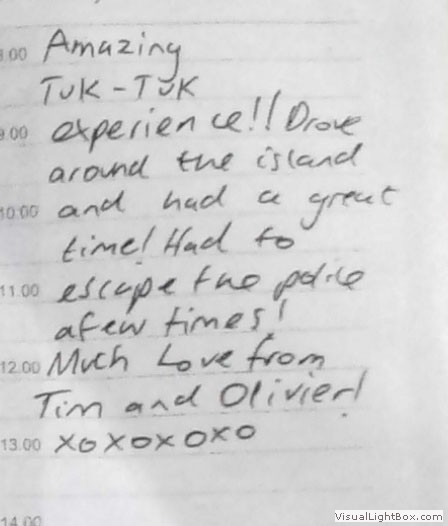 8.00 Amazing
TUK-TUK
9.00 experience!! Drove
around the island
10:00 and had a great
time! Had to
11.00 escape the police
a few times!
12.00 Much Love from
Tim and Olivier!
13.00 xoxoxoxo
14.00
VisualLightBox.com